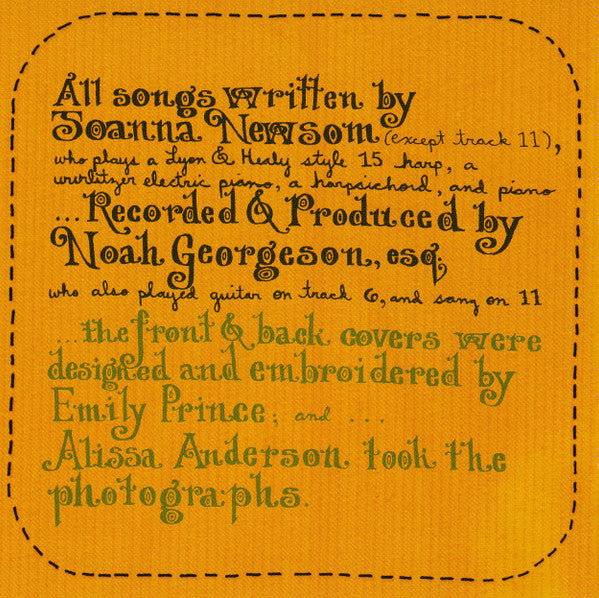 All songs written by
Joanna Newsom (except track 11),
who plays a Lyon & Healy style 15 harp, a
wurlitzer electric piano, a harpsichord, and piano
...Recorded & Produced by
Noah Georgeson, esq.
who also played guitar on track 6, and sang on 11
...the front & back covers were
designed and embroidered by
Emily Prince; and ...
Alissa Anderson took the
photographs.